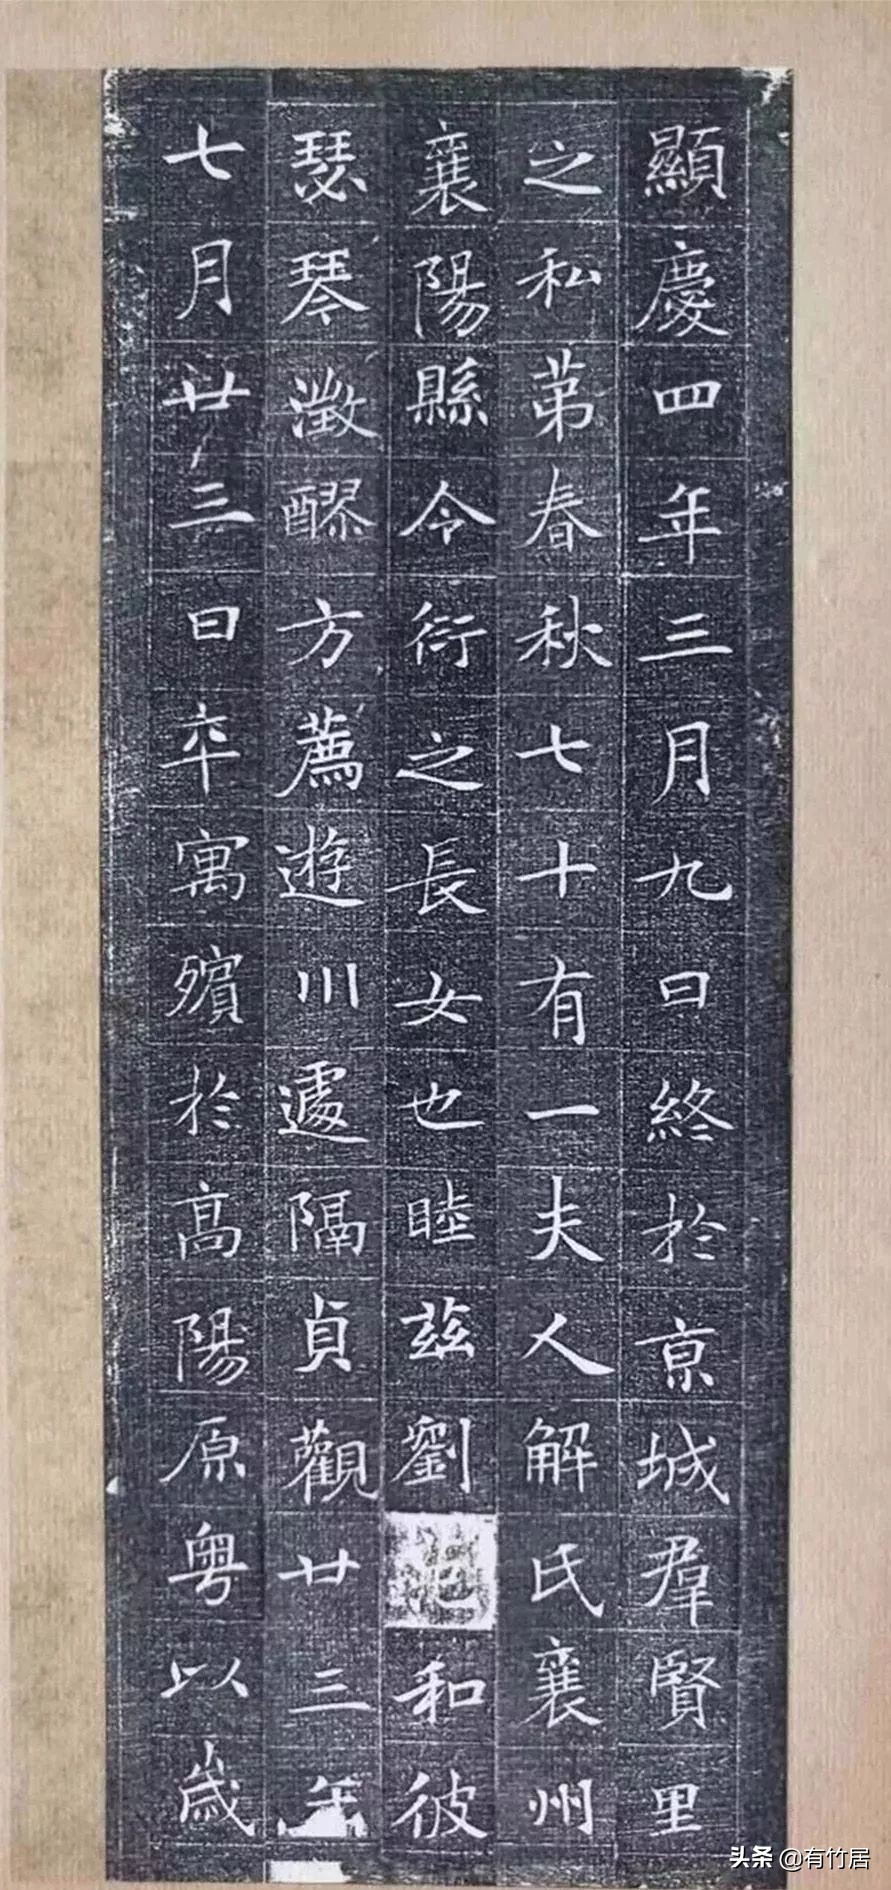 顯慶四年三月九日終於亰城羣賢里
之私第春秋七十有一夫人解氏襄州
襄陽縣令衍之長女也睦茲劉和彼
瑟琴澂醪方薦遊川遽隔貞觀廿三年
七月廿三日卒寓殯於高陽原粵以歲
头条 @有竹居